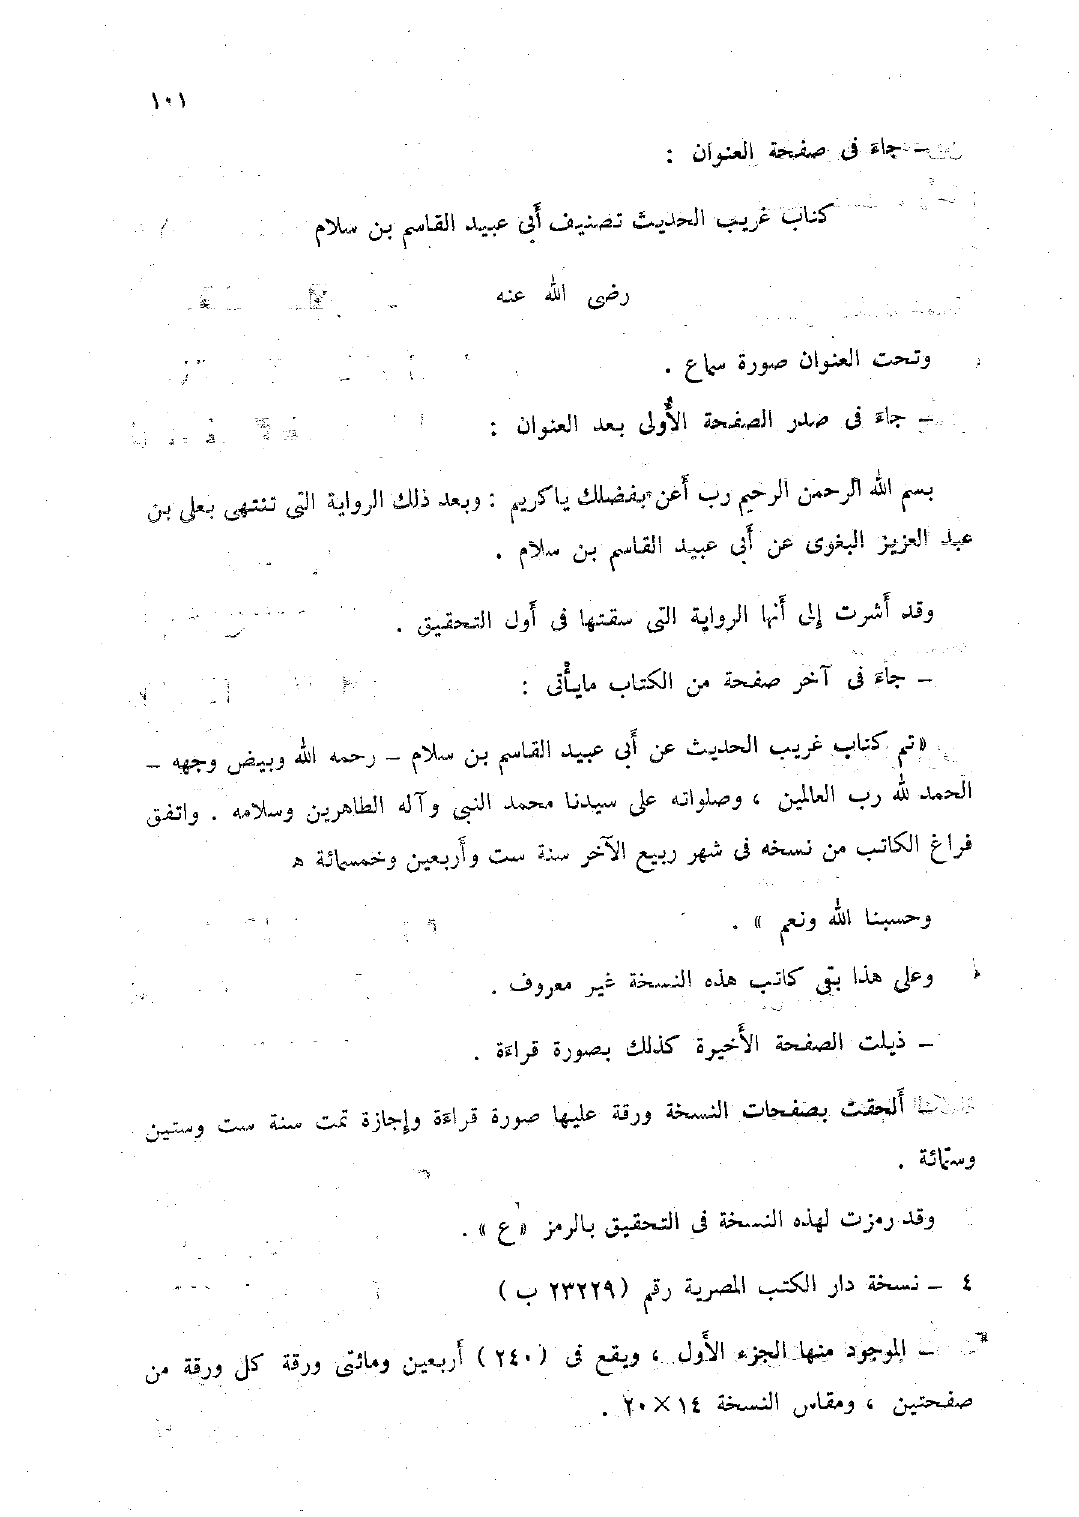 ١٠١
– جاءَ فى صفحة العنوان :
كتاب غريب الحديث تصنيف أَبى عبيد القاسم بن سلام
رضى الله عنه
وتحت العنوان صورة سماع .
– جاءَ فى صدر الصفحة الأُولى بعد العنوان :
بسم الله الرحمن الرحيم رب أَعن بفضلك ياكريم : وبعد ذلك الرواية التى تنتهى بعلى بن
عبد العزيز البغوى عن أَبى عبيد القاسم بن سلام .
وقد أَشرت إلى أَنها الرواية التى سقتها فى أَول التحقيق .
– جاءَ فى آخر صفحة من الكتاب مايأْتى :
« تم كتاب غريب الحديث عن أَبى عبيد القاسم بن سلام – رحمه الله وبيض وجهه –
الحمد لله رب العالمين ، وصلواته على سيدنا محمد النبى وآله الطاهرين وسلامه . واتفق
فراغ الكاتب من نسخه فى شهر ربيع الآخر سنة ست وأَربعين وخمسمائة ه
وحسبنا الله ونعم » .
وعلى هذا بقى كاتب هذه النسخة غير معروف .
– ذيلت الصفحة الأَخيرة كذلك بصورة قراءَة .
أَلحقت بصفحات النسخة ورقة عليها صورة قراءَة وإجازة تمت سنة ست وستين
وستمائة .
وقد رمزت لهذه النسخة فى التحقيق بالرمز « ع » .
٤ – نسخة دار الكتب المصرية رقم ( ٢٣٢٢٩ ب )
– الموجود منها الجزء الأَول ، ويقع فى ( ٢٤٠ ) أَربعين ومائتى ورقة كل ورقة من
صفحتين ، ومقاس النسخة ١٤ × ٢٠ .